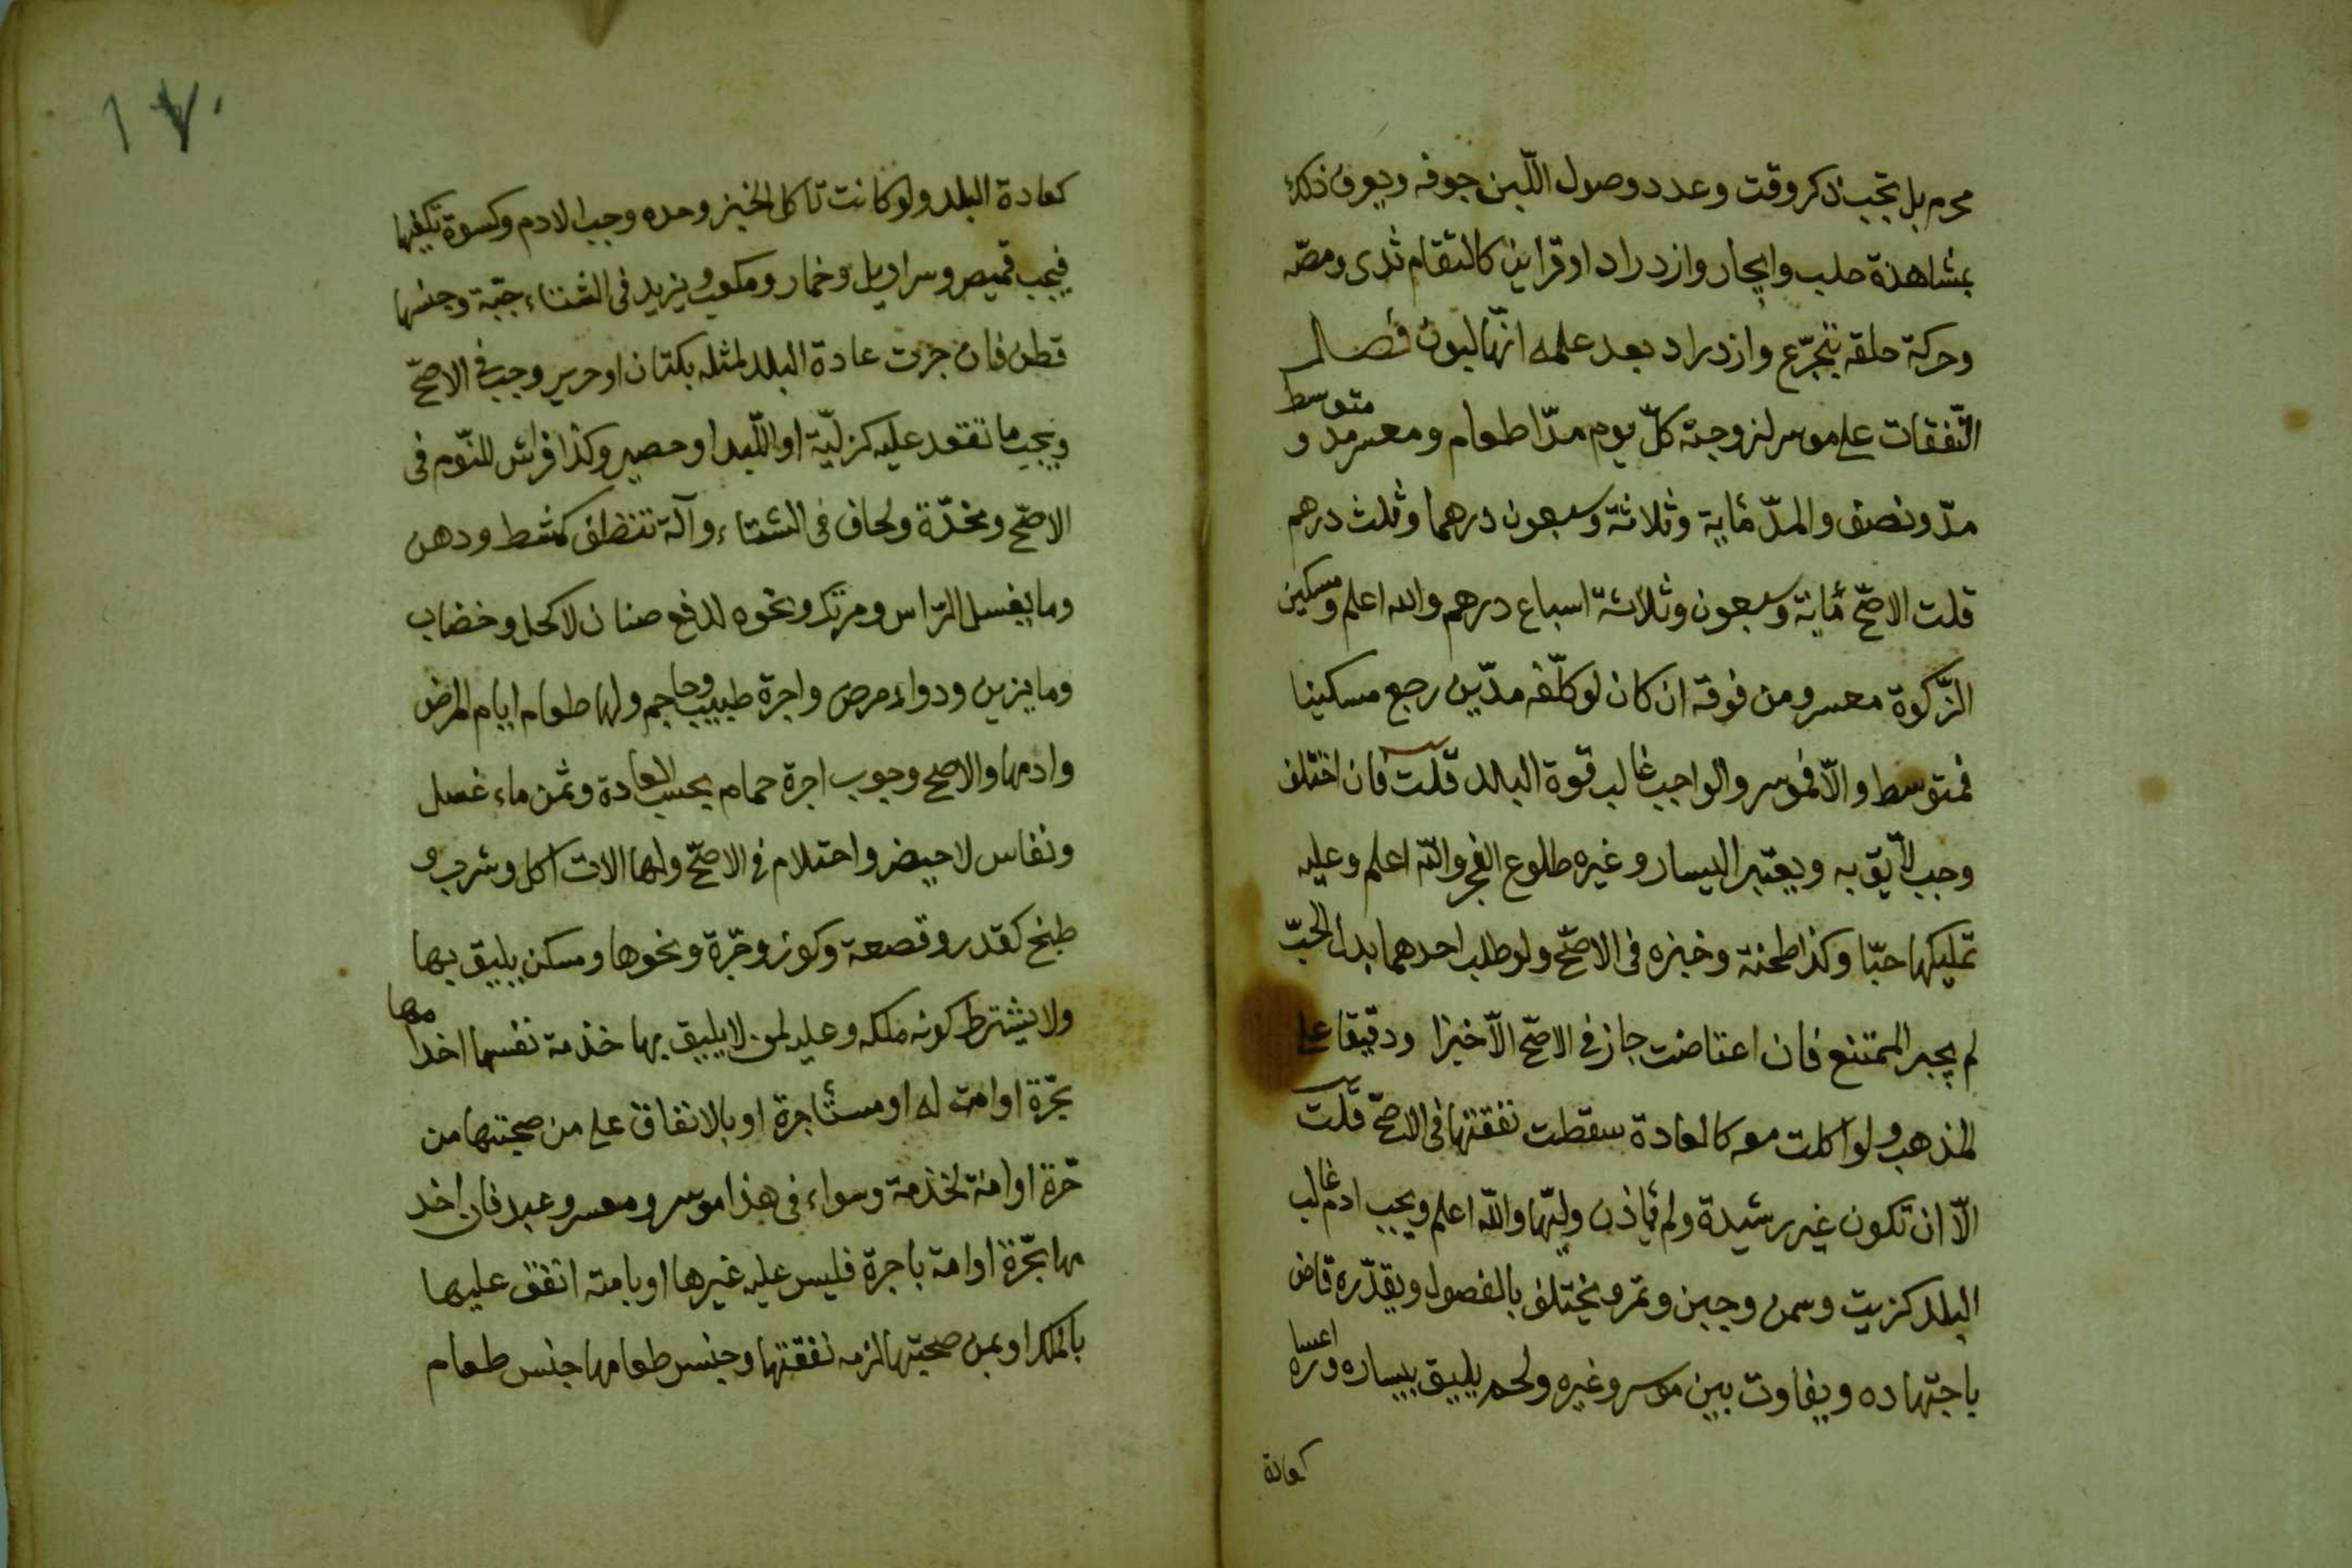 محرم بل تجب ذكر وقت وعدد وصول اللّبن جوفه ويعرف ذلك
بمشاهدة حلب وايجار وازدراد او قراين كالتقام ثدى ومصّه
وحركة حلقه بتجرّع وازدراد بعد علمه انّها لبون فصل
النّفقات على موسر لزوجته كلّ يوم مدّا طعام ومعسر مد و متوسط
مدّ ونصف والمدّ مٔاية وثلاثة وسبعون درهما وثلث درهم
قلت الاصحّ مٔاية وسبعون وثلاثة اسباع درهم والله اعلم ومسكين
الزّكوة معسر ومن فوقه ان كان لو كلّف مدّين رجع مسكينا
فمتوسط والّا فموسر والواجب غالب قوة البلد قلت فان اختلف
وجب لائق به ويعتبر اليسار وغيره طلوع الفجر واللّه اعلم وعليه
تمليكها حبّا وكذا طحنه وخبزه فى الاصحّ ولو طلب احدهما بدل الحبّ
لم يجبر الممتنع فان اعتاضت جاز فى الاصحّ الّا خبزا ودقيقا على
المذهب ولو اكلت معه كالعادة سقطت نفقتها فى الاصحّ قلت
الّا ان تكون غير رشيدة ولم ئاذن وليّها واللّه اعلم ويجب ادم غالب
البلد كزيت وسمن وجبن وتمر ويختلف بالفصول ويقدّره قاض
باجتهاده ويفاوت بين موسر وغيره ولحم يليق بيساره واعساره
كعادة
١٧٠
كعادة البلد ولو كانت تاكل الخبز وحده وجب الادم وكسوة تكفيها
فيجب قميص وسراويل وخمار ومكعب ويزيد فى الشتاء جبّة وجنسها
قطن فان جرت عادة البلد لمثله بكتان او حرير وجب فى الاصحّ
ويجب ما تقعد عليه كزليّة او اللّبد او حصير وكذا فراش للنّوم فى
الاصحّ ومخدّة ولحاف فى الشتاء وآلة تنظف كمشط ودهن
وما يغسل الرّاس ومرتك ونحوه لدفع صنان لا كحل وخضاب
وما يزين ودواء مرض واجرة طبيب وحاجم ولها طعام ايام المرض
وادمها والاصح وجوب اجرة حمام بحسب العادة وثمن ماء غسل
ونفاس لا حيض واحتلام فى الاصحّ ولها الات اكل وشرب و
طبخ كقدر وقصعة وكوز وجرّة ونحوها ومسكن يليق بها
ولا يشترط كونه ملكه وعليه لمن لا يليق بها خدمة نفسها اخدامها
بحّرة او امة له او مستٔاجرة او بالانفاق على من صحبتها من
حّرة او امة لخدمة وسواء فى هذا موسر ومعسر وعبد فان اخد
مها بحّرة او امة باجرة فليس عليه غيرها او بامته انفق عليها
بالملك او بمن صحبتها لزمه نفقتها وجنس طعامها جنس طعام